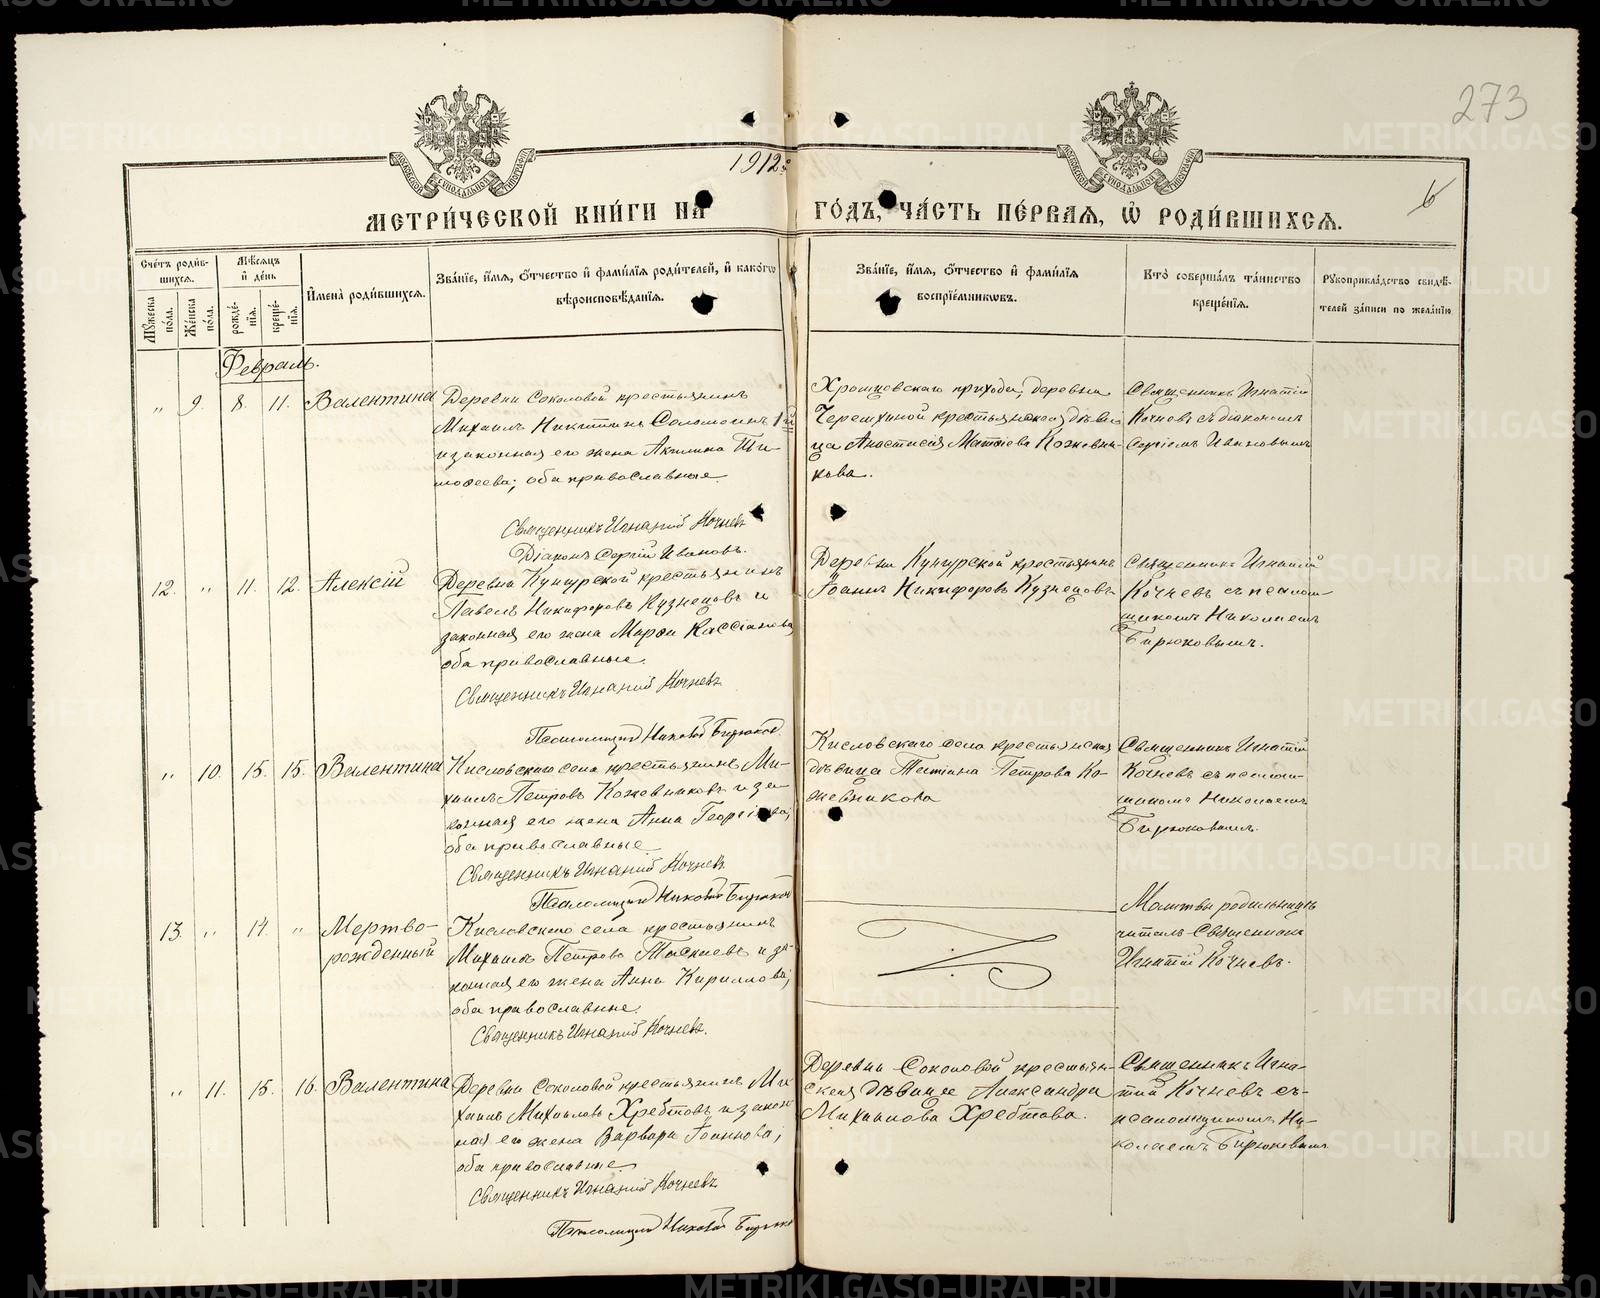 273
МОСКОВСКОЙ СѴНОДАЛЬНОЙ ТИПОГРАФІИ
МОСКОВСКОЙ СѴНОДАЛЬНОЙ ТИПОГРАФІИ
1912 г.
6
МЕТРИ́ЧЕСКОЙ КНИ́ГИ НА ГО́ДЪ, ЧА́СТЬ ПЕ́РВАѦ, Ѡ҆ РОДИ́ВШИХСѦ.
Сче́тъ роди́в-
шихсѧ.
Мѣ́сѧцъ
и҆ де́нь
Мꙋ́жеска по́ла.
Же́нска по́ла.
рожде́-
нїѧ.
креще́-
нїѧ.
И҆мена̀ роди́вшихсѧ.
Зва́нїе, и҆́мѧ, ѻ҆́тчество и҆ фами́лїѧ роди́телей, и҆ како́гѡ
вѣроисповѣ́данїѧ.
Зва́нїе, и҆́мѧ, ѻ҆́тчество и҆ фами́лїѧ
воспрїе́мникѡвъ.
Кто̀ соверша́лъ та́инство
креще́нїѧ.
Рꙋкоприкла́дство свидѣ́-
телей за́писи по жела́нїю
Февраль.
„ 9. 8. 11. Валентина
Деревни Соколовой крестьянинъ
Михаилъ Никитинъ Соломеинъ 1й
и законная его жена Акилина Ти-
мофеева; оба православные
Священникъ Игнатій Кочневъ
Діаконъ Сергій Ивановъ.
Хромцовскаго прихода, деревни
Черемхиной крестьянская дѣви
ца Анастасія Матѳіева Кожевни-
кова.
Священникъ Игнатій
Кочневъ съ діакономъ
Сергіемъ Ивановымъ
12. „ 11. 12. Алексій
Деревни Кунгурской крестьянинъ
Павелъ Никифоровъ Кузнецовъ и
законная его жена Марѳа Кассіанова
оба православные.
Священникъ Игнатій Кочневъ
Псаломщикъ Николай Бирюков
Деревни Кунгурской крестьянинъ
Іоаннъ Никифоровъ Кузнецовъ
Священникъ Игнатій
Кочневъ съ псалом-
щикомъ Николаемъ
Бирюковымъ.
„ 10. 15. 15. Валентина
Кисловскаго села крестьянинъ Ми-
хаилъ Петровъ Кожевниковъ и за
конная его жена Анна Георгіева;
оба православные
Священникъ Игнатій Кочневъ
Псаломщикъ Николай Бирюков
Кисловскаго села крестьянская
дѣвица Татіана Петрова Ко-
жевникова
Священникъ Игнатій
Кочневъ съ псалом-
щикомъ Николаемъ
Бирюковымъ.
13 „ 14. „ Мертво-
рожденный
Кисловскаго села крестьянинъ
Михаилъ Петровъ Таскаевъ и за-
конная его жена Анна Кириллова;
оба православные.
Священникъ Игнатій Кочневъ.
Молитвы родильницѣ
читалъ Священникъ
Игнатій Кочневъ.
„ 11. 15. 16. Валентина
Деревни Соколовой крестьянинъ Ми
хаилъ Михайловъ Хребтовъ и закон
ная его жена Варвара Іоаннова;
оба православные
Священникъ Игнатій Кочневъ
Псаломщикъ Николай Бирюко
Деревни Соколовой крестьян-
ская дѣвица Александра
Михайлова Хребтова.
Священникъ Игна-
тій Кочневъ съ
псаломщикомъ Ни-
колаемъ Бирюковымъ
METRIKI.GASO-URAL.RU